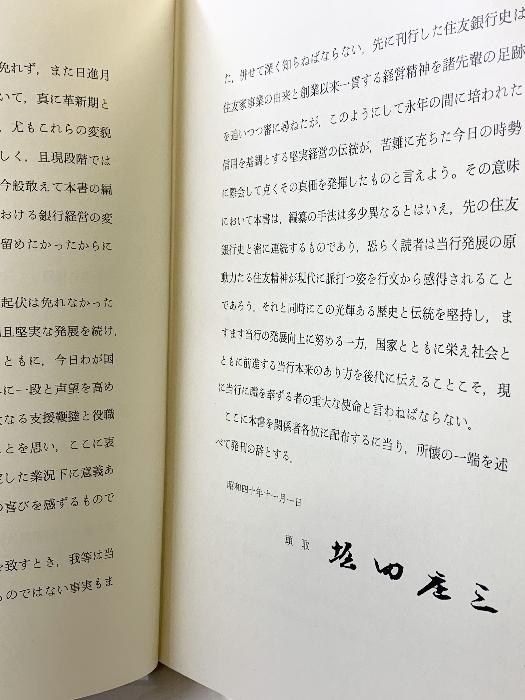 免れず，また日進月
いて，真に革新期と
，尤もこれらの変貌
しく，且現段階では
今般敢えて本書の編
おける銀行経営の変
留めたかったからに
起伏は免れなかった
且堅実な発展を続け，
ともに，今日わが国
に一段と声望を高め
なる支援鞭撻と役職
とを思い，ここに衷
した業況下に意義あ
の喜びを感ずるもので
を致すとき，我等は当
ものではない事実もま
た，併せて深く知らねばならない。先に刊行した住友銀行史は
住友家事業の由来と創業以来一貫する経営精神を諸先輩の足跡
を追いつつ審に尋ねたが，このようにして永年の間に培われた
信用を基調とする堅実経営の伝統が，苦難に充ちた今日の時勢
に際会して点くその真価を発揮したものと言えよう。その意味
において本書は，編纂の手法は多少異なるとはいえ，先の住友
銀行史と密に連続するものであり，恐らく読者は当行発展の原
動力たる住友精神が現代に脈打つ姿を行文から感得されること
であろう。それと同時にこの光輝ある歴史と伝統を堅持し，ま
すます当行の発展向上に努める一方，国家とともに栄え社会と
ともに前進する当行本来のあり方を後代に伝えることこそ，現
に当行に職を奉ずる者の重大な使命と言わねばならない。
ここに本書を関係者各位に配布するに当り，所懐の一端を述
べて発刊の辞とする。
昭和四十年十一月一日
頭取 堀田庄三